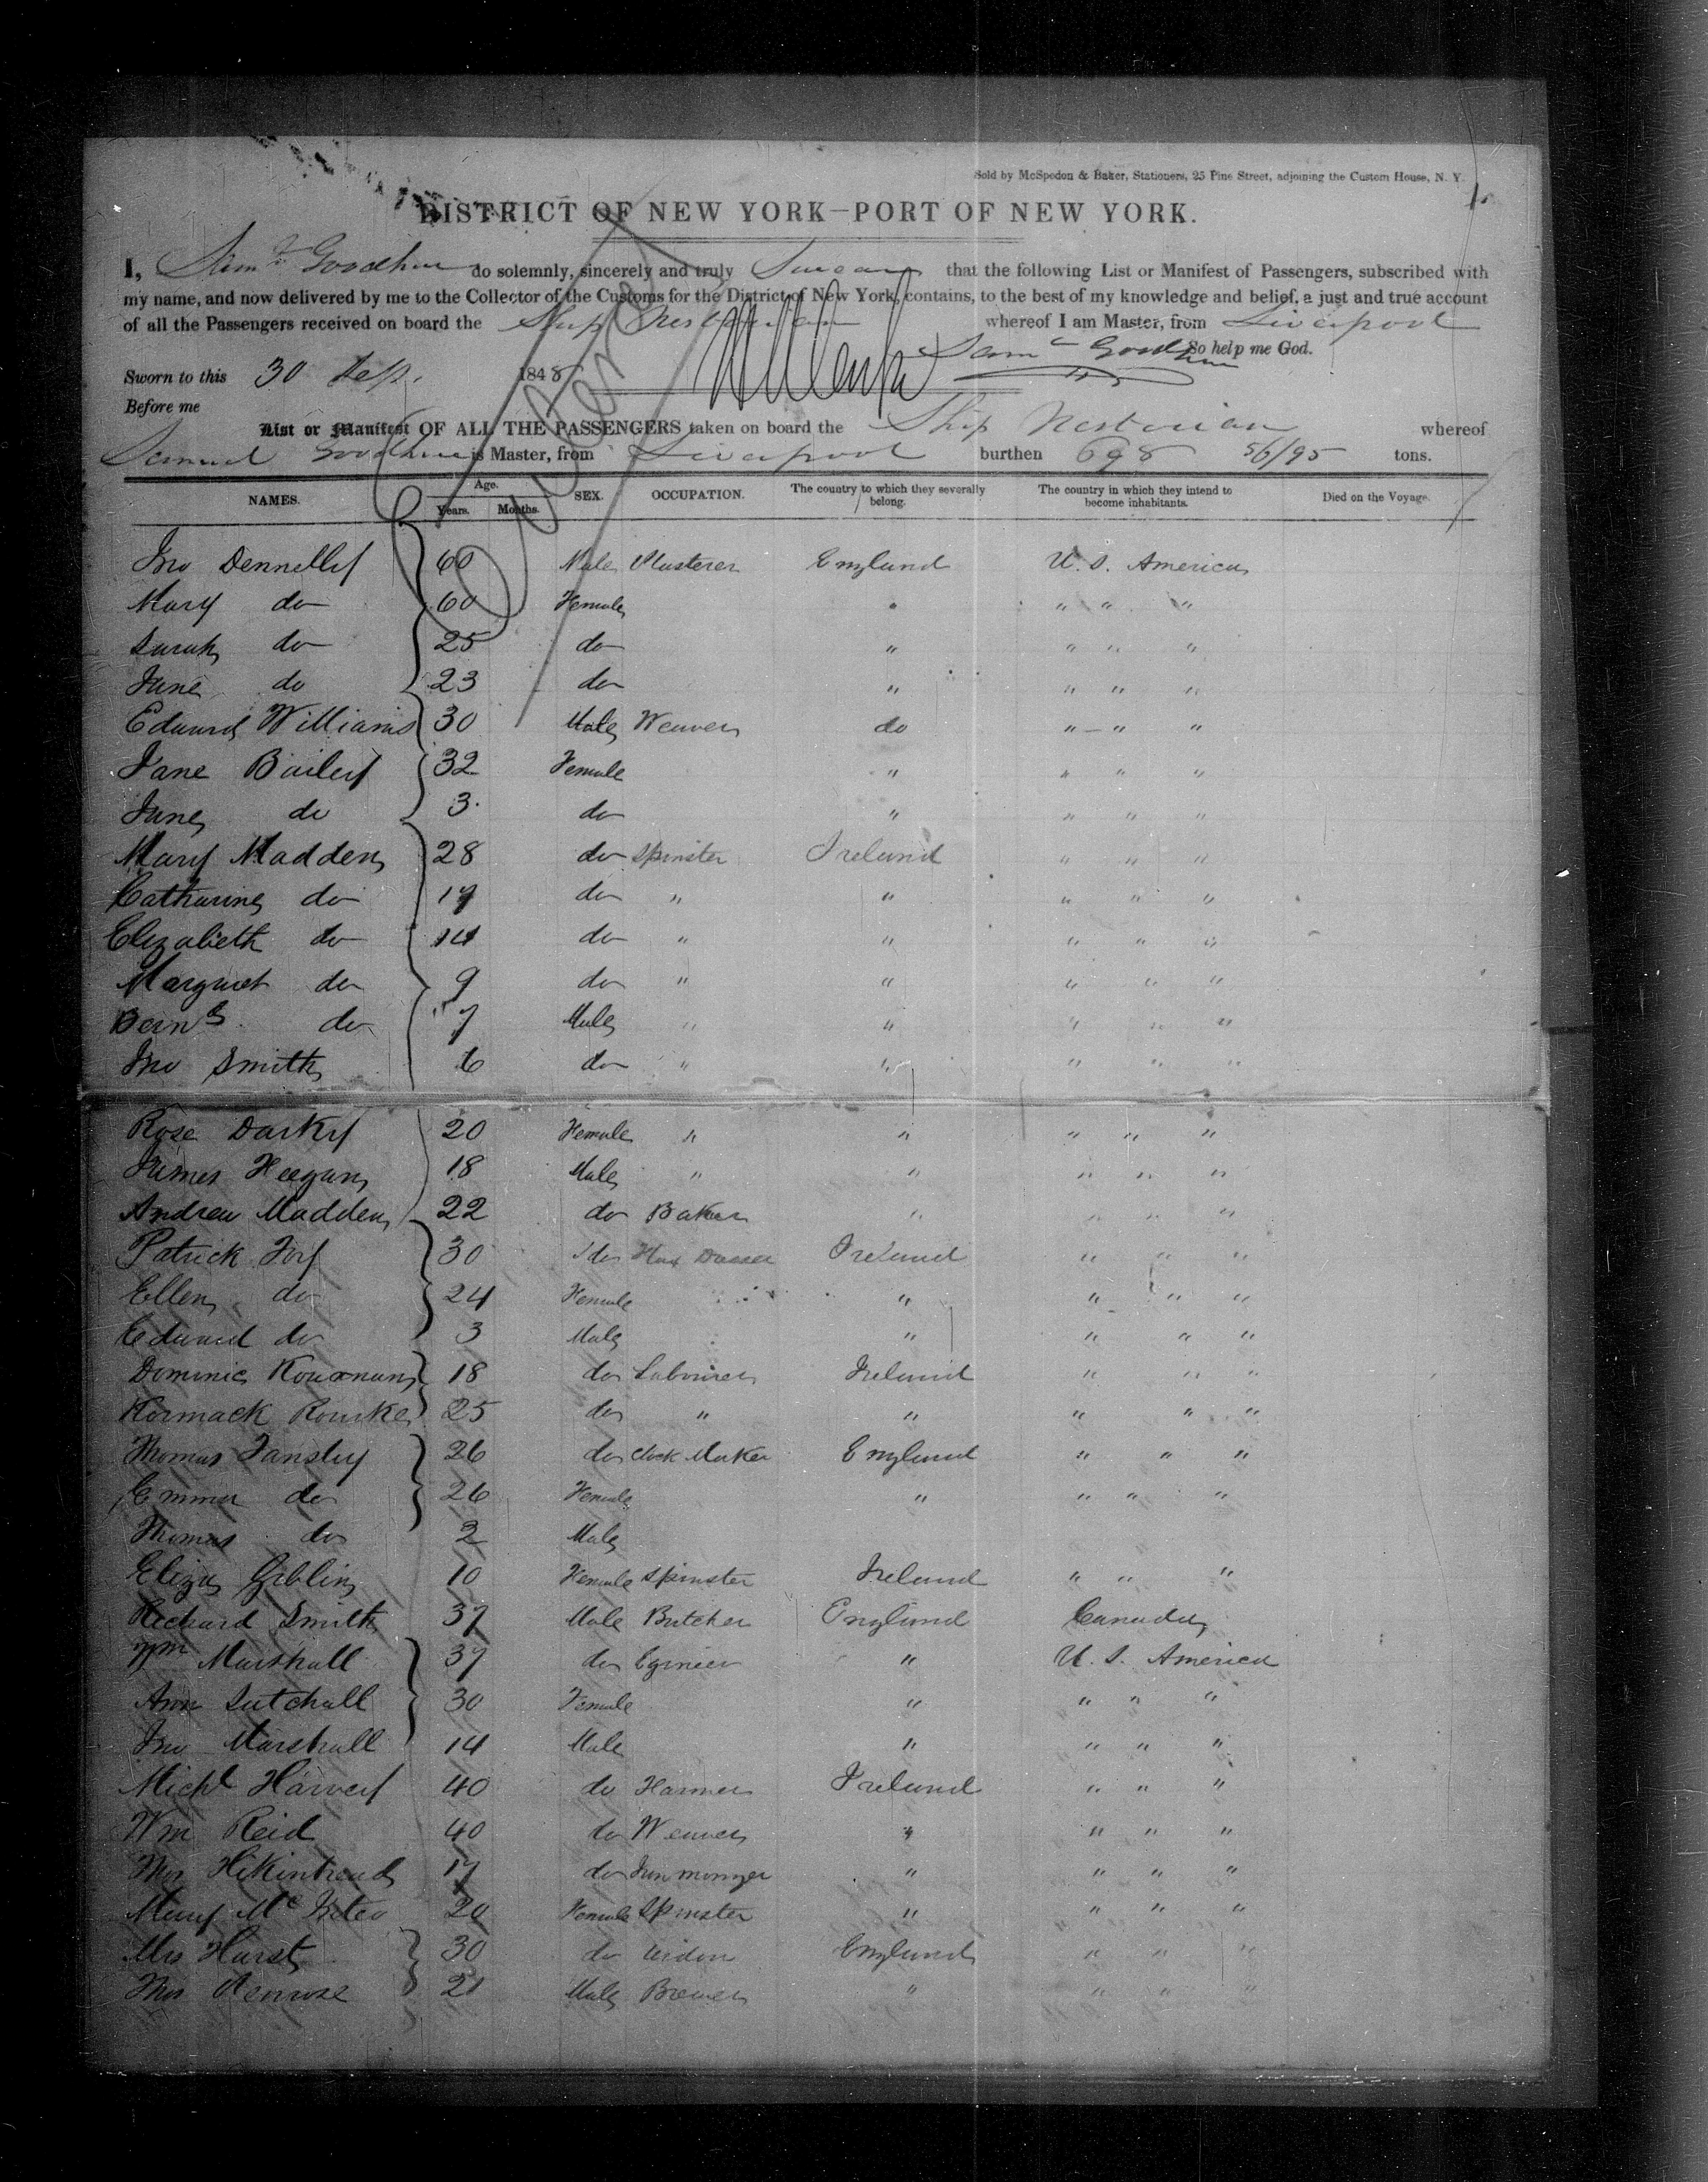 Sold by McSpedon & Baker, Stationers, 25 Pine Street, adjoining the Custom House, N. Y.
1.
DISTRICT OF NEW YORK—PORT OF NEW YORK.
I, Saml Goodhue do solemnly, sincerely and truly Swear that the following List or Manifest of Passengers, subscribed with
my name, and now delivered by me to the Collector of the Customs for the District of New York, contains, to the best of my knowledge and belief, a just and true account
of all the Passengers received on board the Ship Nestorian whereof I am Master, from Liverpool
Saml Goodhue So help me God.
Sworn to this 30 Sep. 1848
Before me
List or Manifest OF ALL THE PASSENGERS taken on board the Ship Nestorian whereof
Samuel Goodhue is Master, from Liverpool burthen 698 56/95 tons.
NAMES. Age. Years. Months. SEX. OCCUPATION. The country to which they severally belong. The country in which they intend to become inhabitants. Died on the Voyage.
Jno Dennelly 60 Male Plasterer England U. S. America
Mary do 60 Female " " " "
Sarah do 25 do " " " "
Jane do 23 do " " " "
Edward Williams 30 Male Weaver do " " "
Jane Bailey 32 Female " " " "
Jane do 3 do " " " "
Mary Madden 28 do Spinster Ireland " " "
Catharine do 17 do " " " " "
Elizabeth do 14 do " " " " "
Margaret do 9 do " " " " "
Bernd do 7 Male " " " " "
Jno Smith 6 do " " " " "
Rose Darky 20 Female " " " " "
James Heegan 18 Male " " " " "
Andrew Madden 22 do Baker " " " "
Patrick Foy 30 do Flax Dresser Ireland " " "
Ellen do 24 Female " " " "
Edward do 3 Male " " " "
Dominic 18 do Labourer Ireland " " "
Kormack Rourke 25 do " " " " "
Thomas Tansley 26 do Clock Maker England " " "
Emma do 26 Female " " " "
Thomas do 2 Male
Eliza Giblin 10 Female Spinster Ireland " " "
Richard Smith 37 Male Butcher England Canada
Wm Marshall 37 do Egineer " U. S. America
Ann Sutchall 30 Female " " " "
Jno Marshall 14 Male " " " "
Michl Harvey 40 do Farmer Ireland " " "
Wm Reid 40 do Weaver " " " "
Thos 17 do Iron monger " " " "
Mary Mc 20 Female Spinster " " " "
Mrs Hurst 30 do Widow England " " "
Thos Penrose 21 Male Brewer " " " "